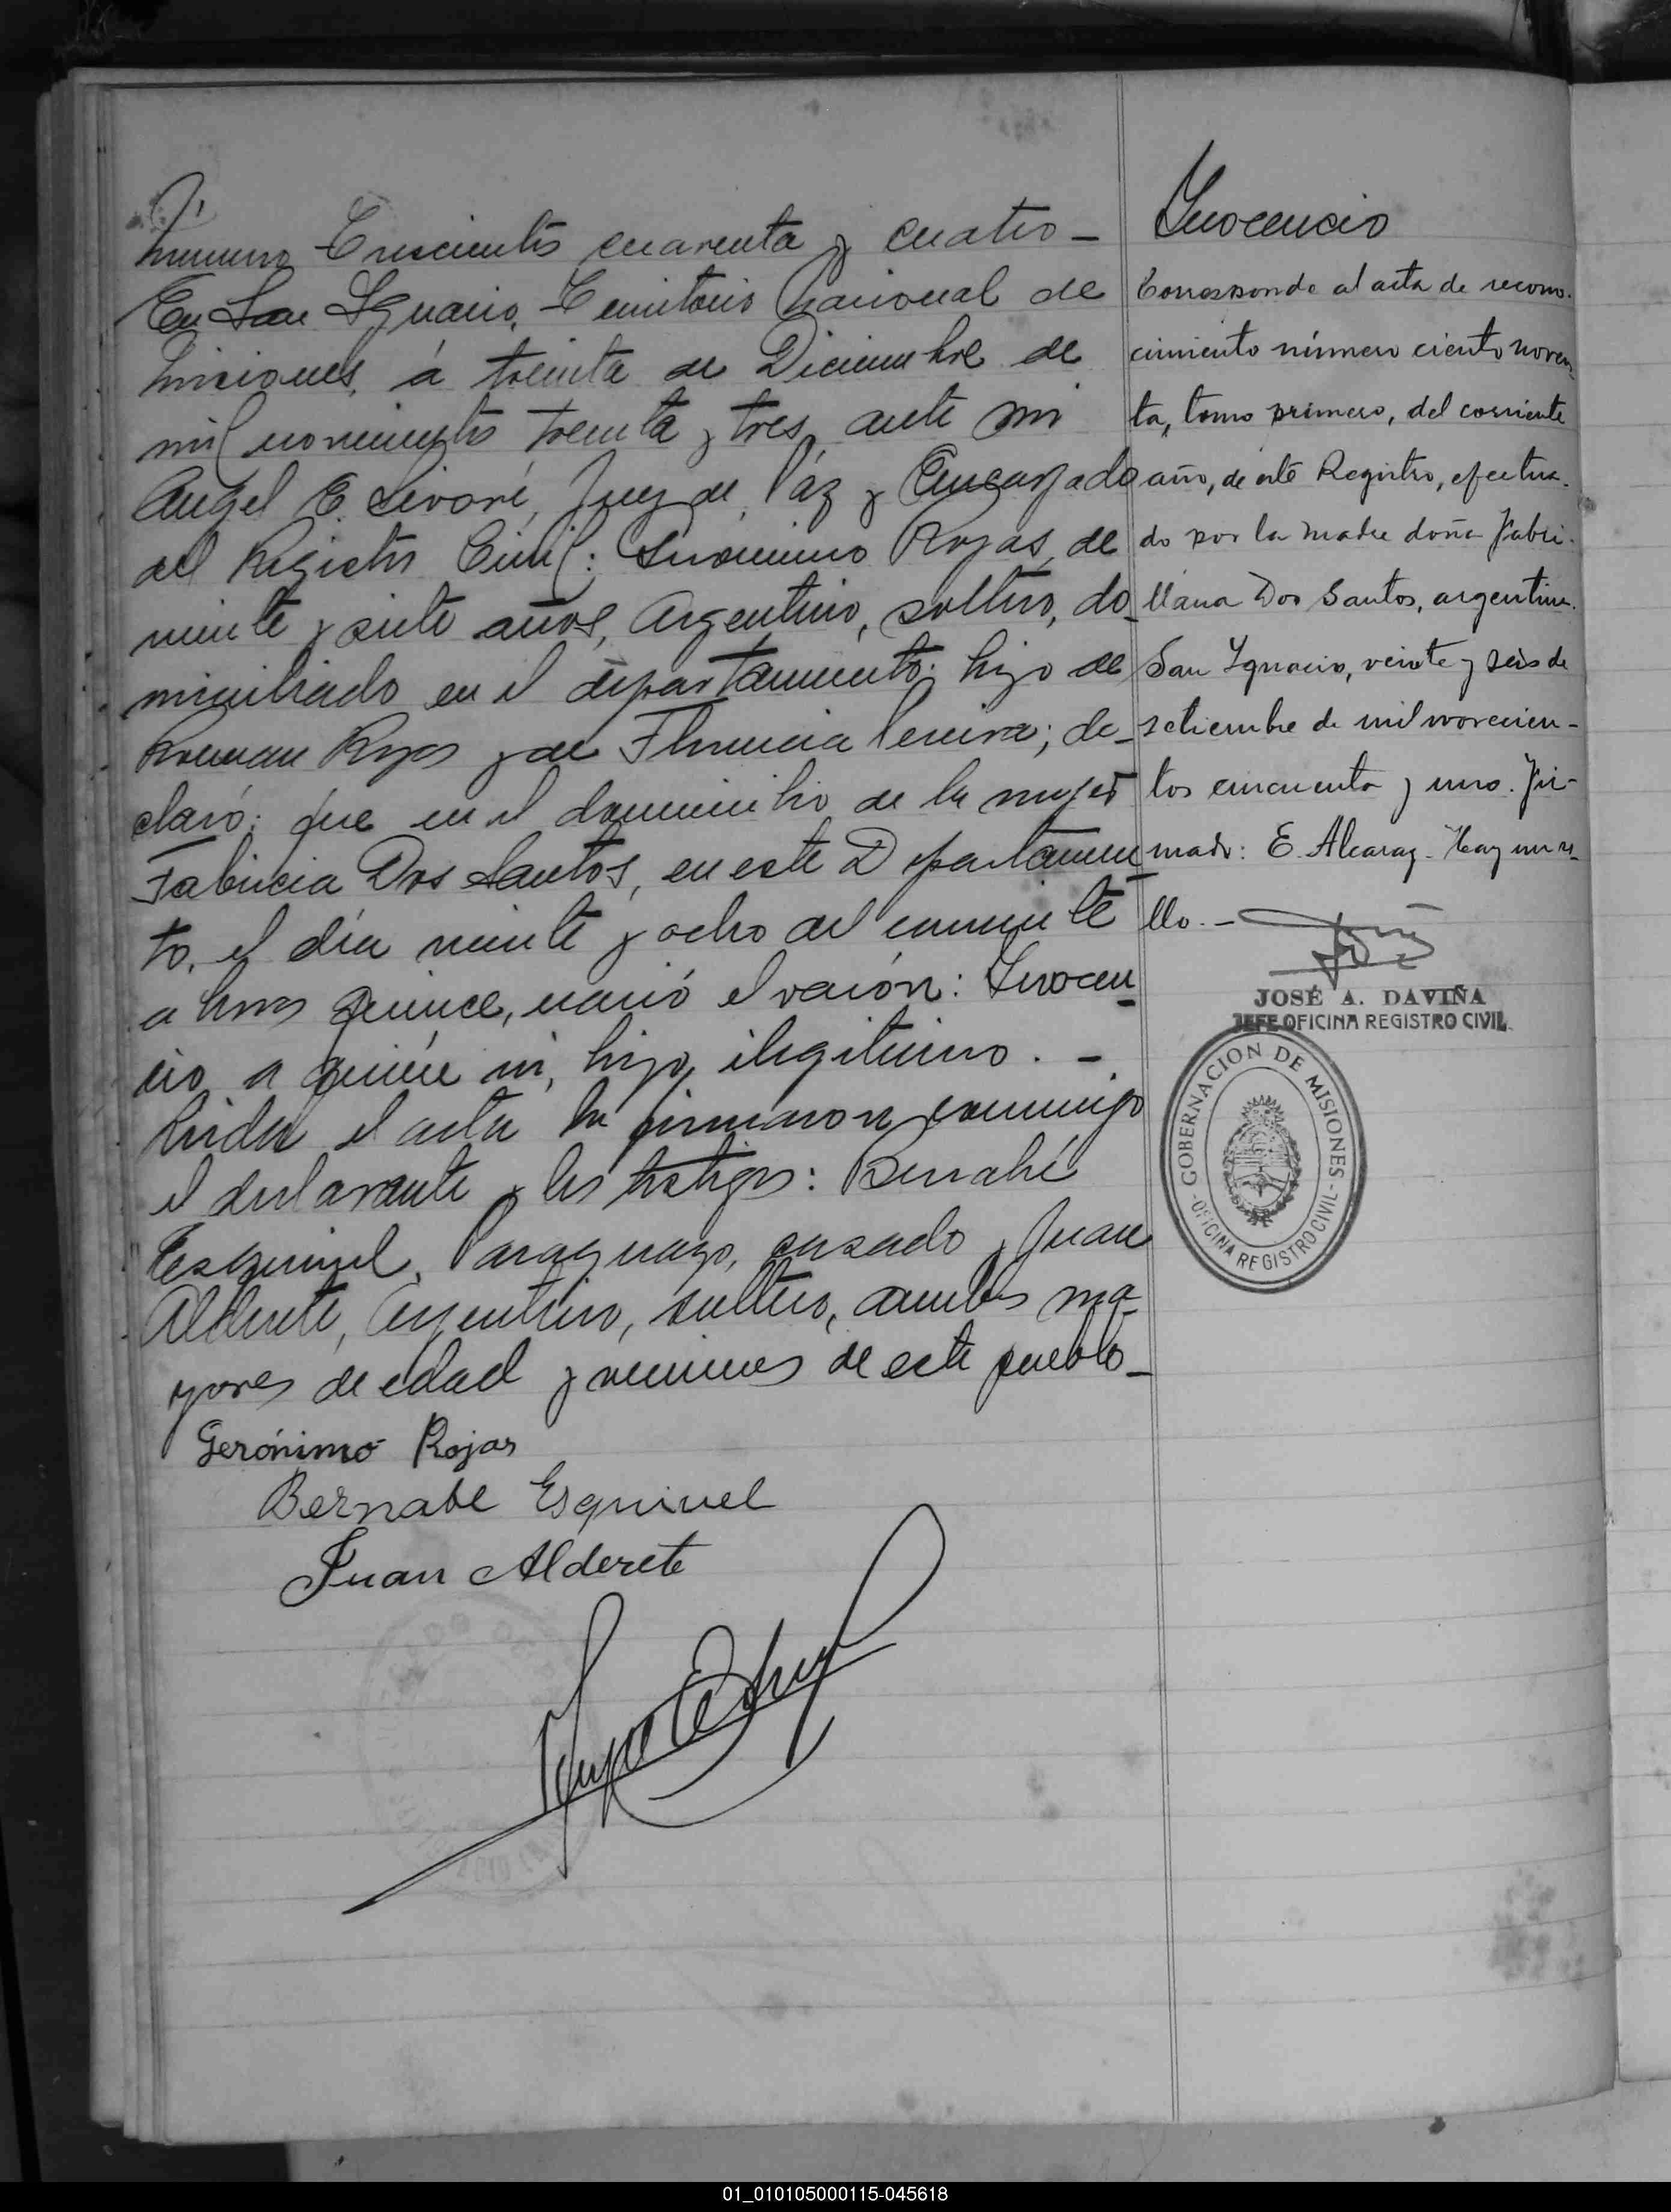 numero Trescientos cuarenta y cuatro -
En San Ignacio, Territorio Nacional de
Misiones, á treinta de Diciembre de
mil novecientos treinta y tres, ante mi
Angel E. Juez de Páz y Encargado
del Registro Civil: Geronimo Rojas, de
veinte y siete años, Argentino, soltero, do-
miciliado en el departamento; hijo de
Roman Rojas y de Florencia Pereira; de-
claró: que en el domicilio de la mujer
Fabricia Dos Santos, en este Departamen-
to, el día veinte y ocho del corriente
a horas quince, nació el varón: Inocen-
cio a quien su hijo ilegitimo. -
Leida el acta la firmaron conmigo
el declarante y los testigos: Bernabé
Esquivel, Paraguayo, casado y Juan
Alderete, Argentino, soltero, ambos ma-
yores de edad y vecinos de este pueblo -
Gerónimo Rojas
Bernabe Esquivel
Juan Alderete
Inocencio
Corresponde al acta de recono-
cimiento número ciento noven-
ta, tomo primero, del corriente
año, de este Registro, efectua-
do por la madre doña Fabri-
llana Dos Santos, argentina.
San Ignacio, veinte y seis de
setiembre de mil novecien-
tos cincuenta y uno. Fir-
mado: E. Alcaraz. Hay un se-
llo. -
JOSÉ A. DAVIÑA
JEFE OFICINA REGISTRO CIVIL
GOBERNACION DE MISIONES
- OFICINA REGISTRO CIVIL -
01_010105000115-045618